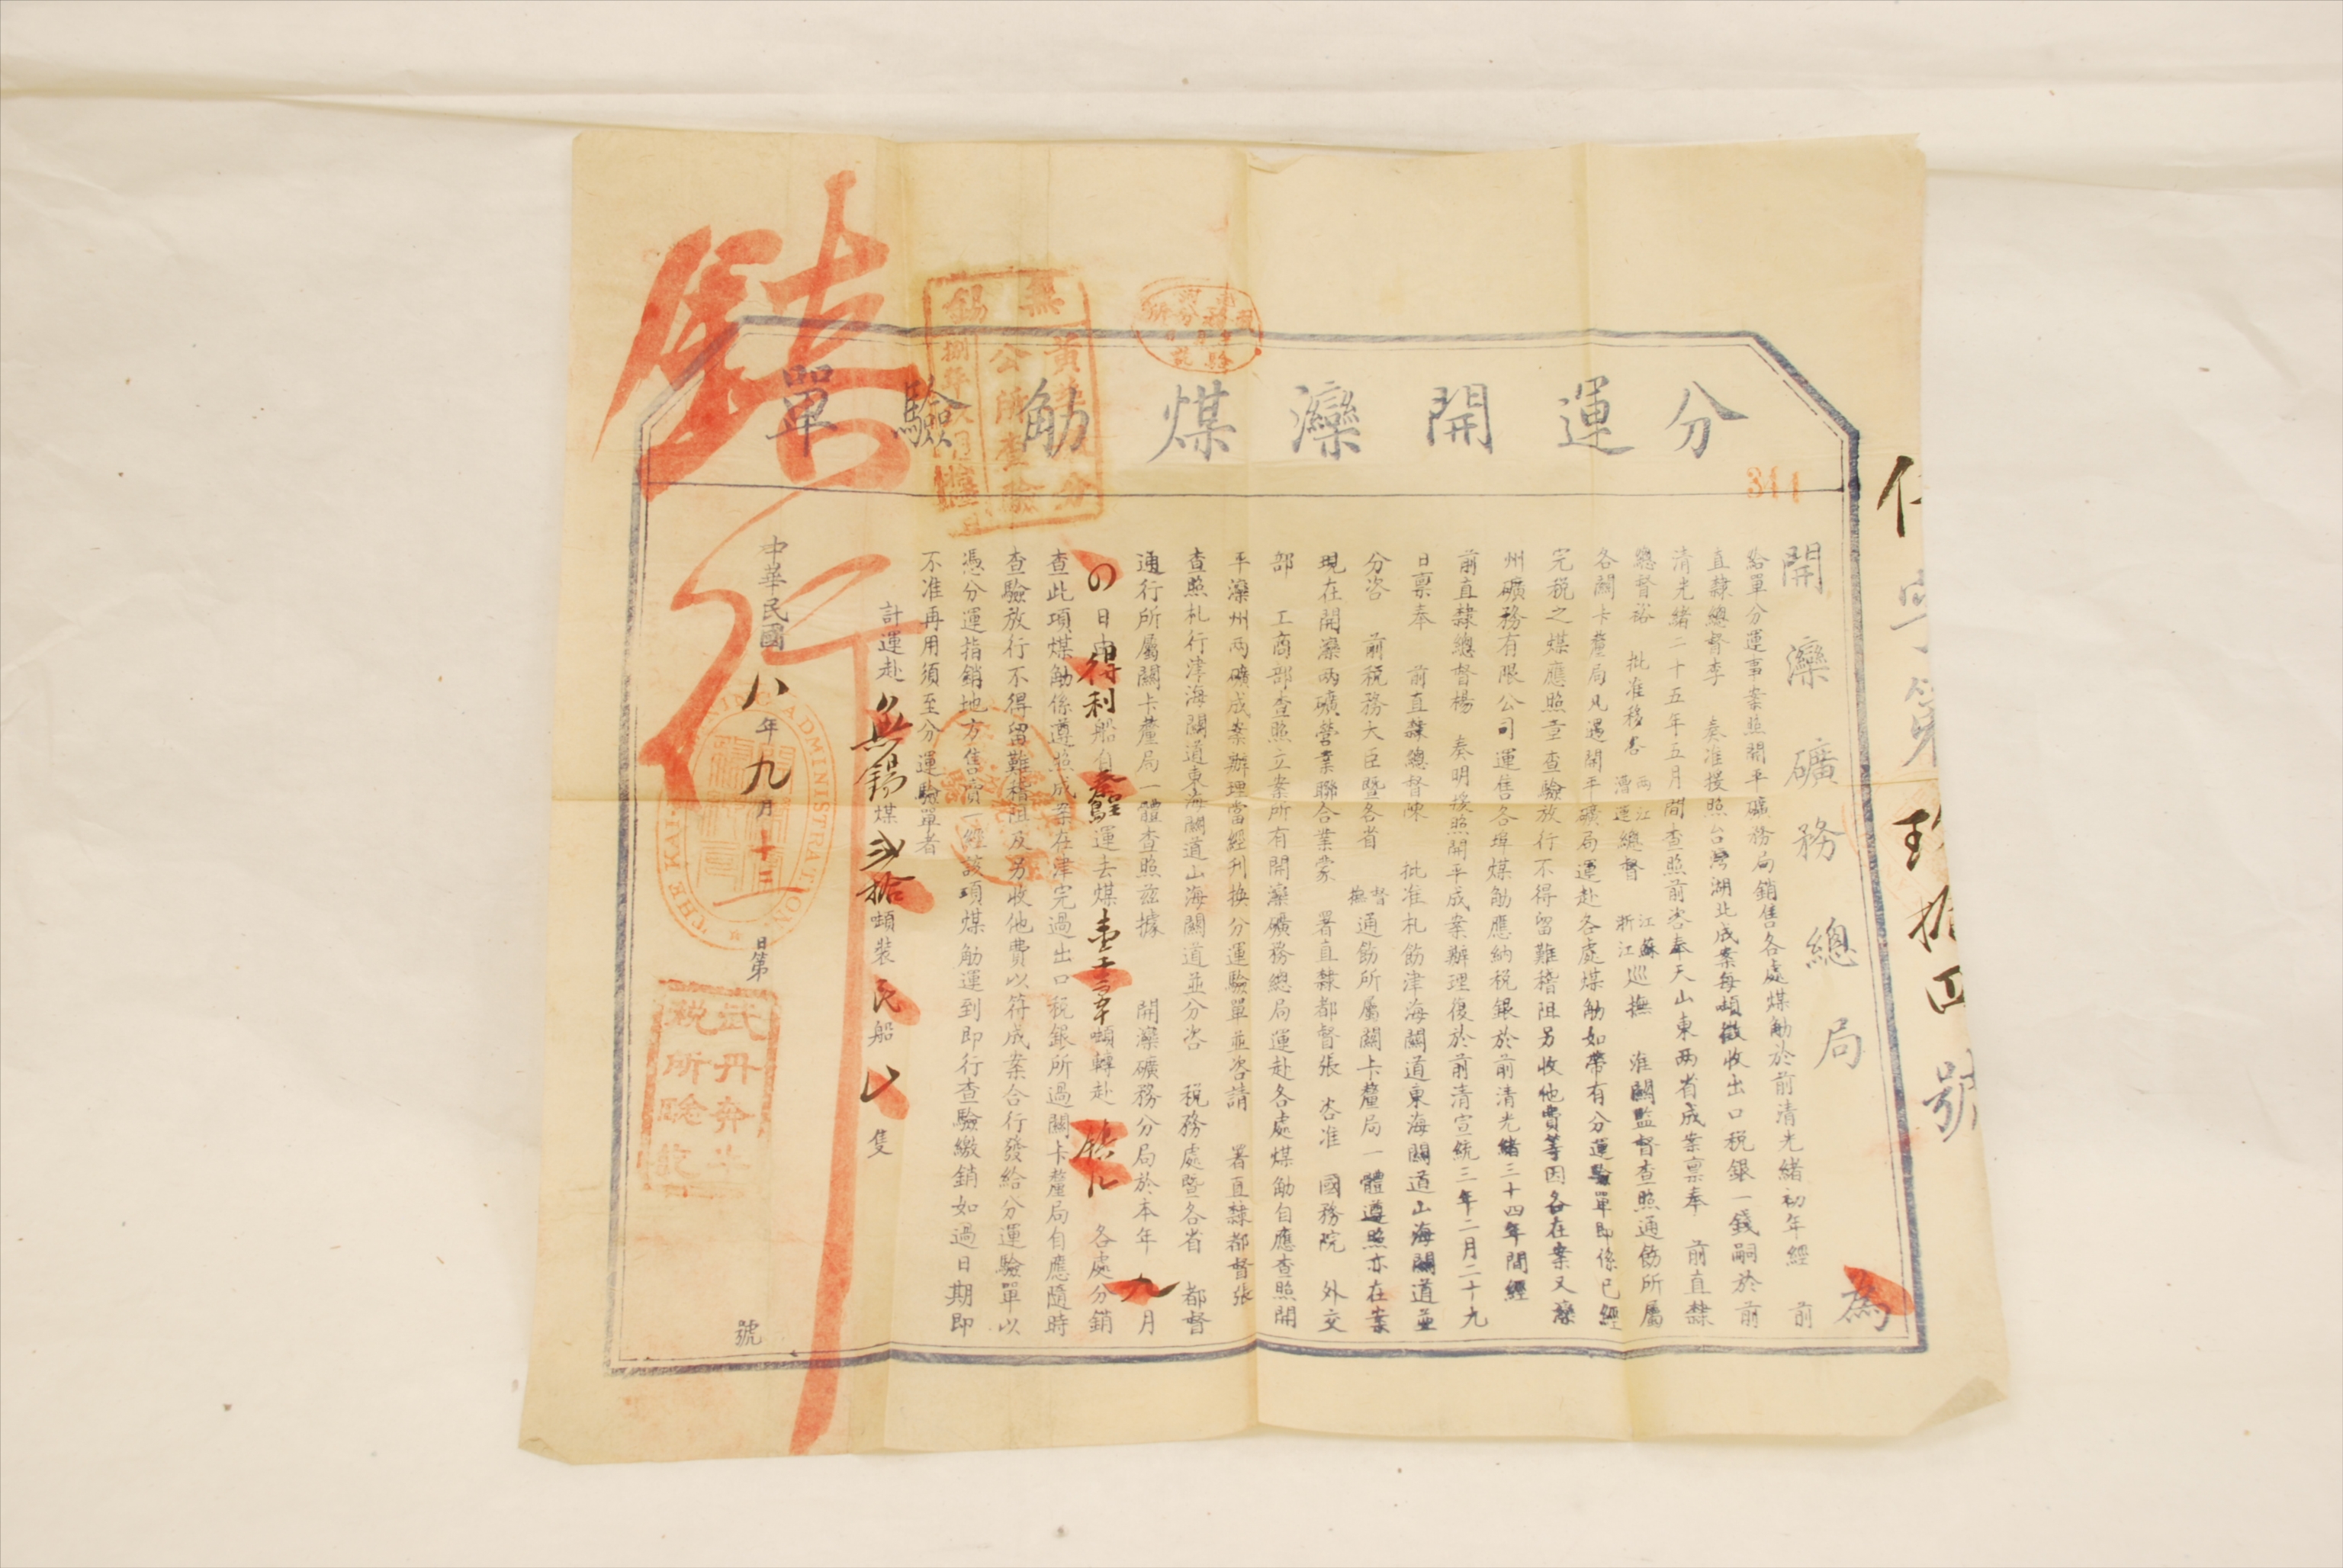 分運開灤煤觔驗單
311
字第
拾四號
開灤礦務總局 為
給單分運事案照開平礦務局銷售各處煤觔於前清光緒初年經 前
直隸總督李 奏准援照台灣湖北成案每噸徵收出口稅銀一錢嗣於前
清光緒二十五年五月間查照前咨奉天山東兩省成案稟奉 前直隸
總督裕 批准移咨 兩江漕運總督 江蘇浙江巡撫 淮關監督查照通飭所屬
各關卡釐局凡遇開平礦局運赴各處煤觔如帶有分運驗單即係已經
完稅之煤應照章查驗放行不得留難稽阻另收他費等因各在案又灤
州礦務有限公司運售各埠煤觔應納稅銀於前清光緒三十四年間經
前直隸總督楊 奏明援照開平成案辦理復於前清宣統三年二月二十九
日稟奉 前直隸總督陳 批准札飭津海關道東海關道山海關道並
分咨 前稅務大臣暨各省 督撫通飭所屬關卡釐局一體遵照亦在案
現在開灤兩礦營業聯合業蒙 署直隸都督張 咨准 國務院 外交
部 工商部查照立案所有開灤礦務總局運赴各處煤觔自應查照開
平灤州兩礦成案辦理當經刊換分運驗單並咨請 署直隸都督張
查照札行津海關道東海關道山海關道並分咨 稅務處暨各省 都督
通行所屬關卡釐局一體查照茲據 開灤礦務分局於本年九月
日由得利船自秦皇運去煤壹千 噸轉赴鎮江 各處分銷
查此項煤觔係遵照成案在津完過出口稅銀所過關卡釐局自應隨時
查驗放行不得留難稽阻及另收他費以符成案合行發給分運驗單以
憑分運指銷地方售賣一經該項煤觔運到即行查驗繳銷如過日期即
不准再用須至分運驗單者
計運赴無錫煤貳拾噸裝民船 隻
中華民國八年九月十三日第 號
行
無錫
公所查驗
THE KAILAN MINING ADMINISTRATION
武丹
稅所驗